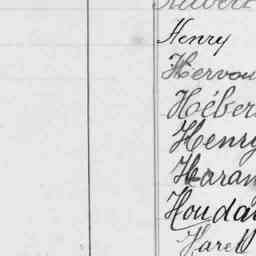 Henry
Hervou
Héber
Henry
Haran
Houda
Harell